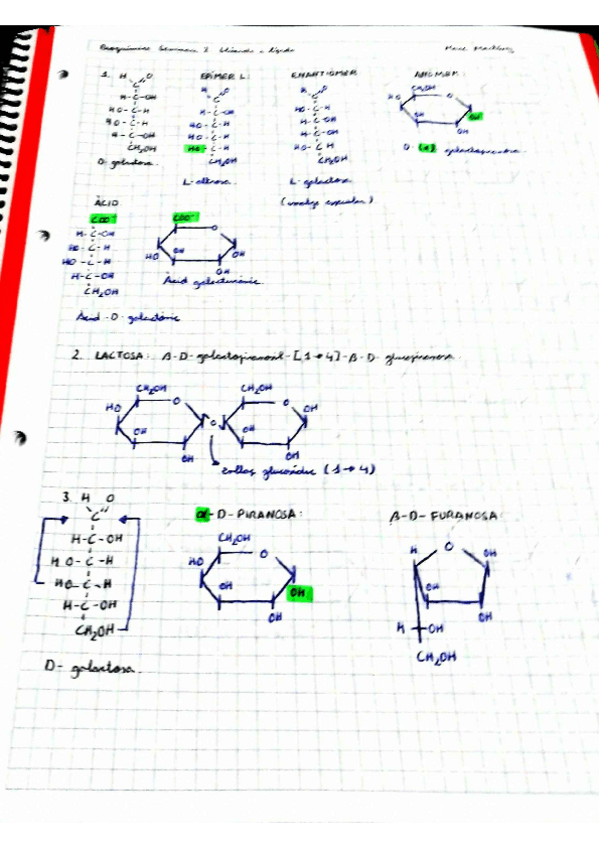 1. H O EPÍMER L: ENANTIÒMER ANÒMER:
C
H-C-OH
HO-C-H
HO-C-H
H-C-OH
CH₂OH
D-galactosa
H-C-OH
HO-C-H
HO-C-H
HO-C-H
CH₂OH
L-altrosa
HO-C-H
H-C-OH
H-C-OH
HO-C-H
CH₂OH
L-galactosa
(imatge especular)
CH₂OH
HO O
OH OH
OH
D-(α) galactopiranosa
ÀCID
COO⁻
H-C-OH
HO-C-H
HO-C-H
H-C-OH
CH₂OH
Àcid-D-galactònic
COO⁻
O
HO OH OH
OH
Àcid galacturònic
2. LACTOSA: β-D-galactopiranosil-[1→4]-β-D-glucopiranosa.
CH₂OH CH₂OH
HO O O OH
OH O OH
OH OH
Enllaç glucosídic (1→4)
3. H O
C
H-C-OH
HO-C-H
HO-C-H
H-C-OH
CH₂OH
D-galactosa
α-D-PIRANOSA:
CH₂OH
HO O
OH OH
OH
β-D-FURANOSA:
H O OH
OH
OH
H OH
CH₂OH